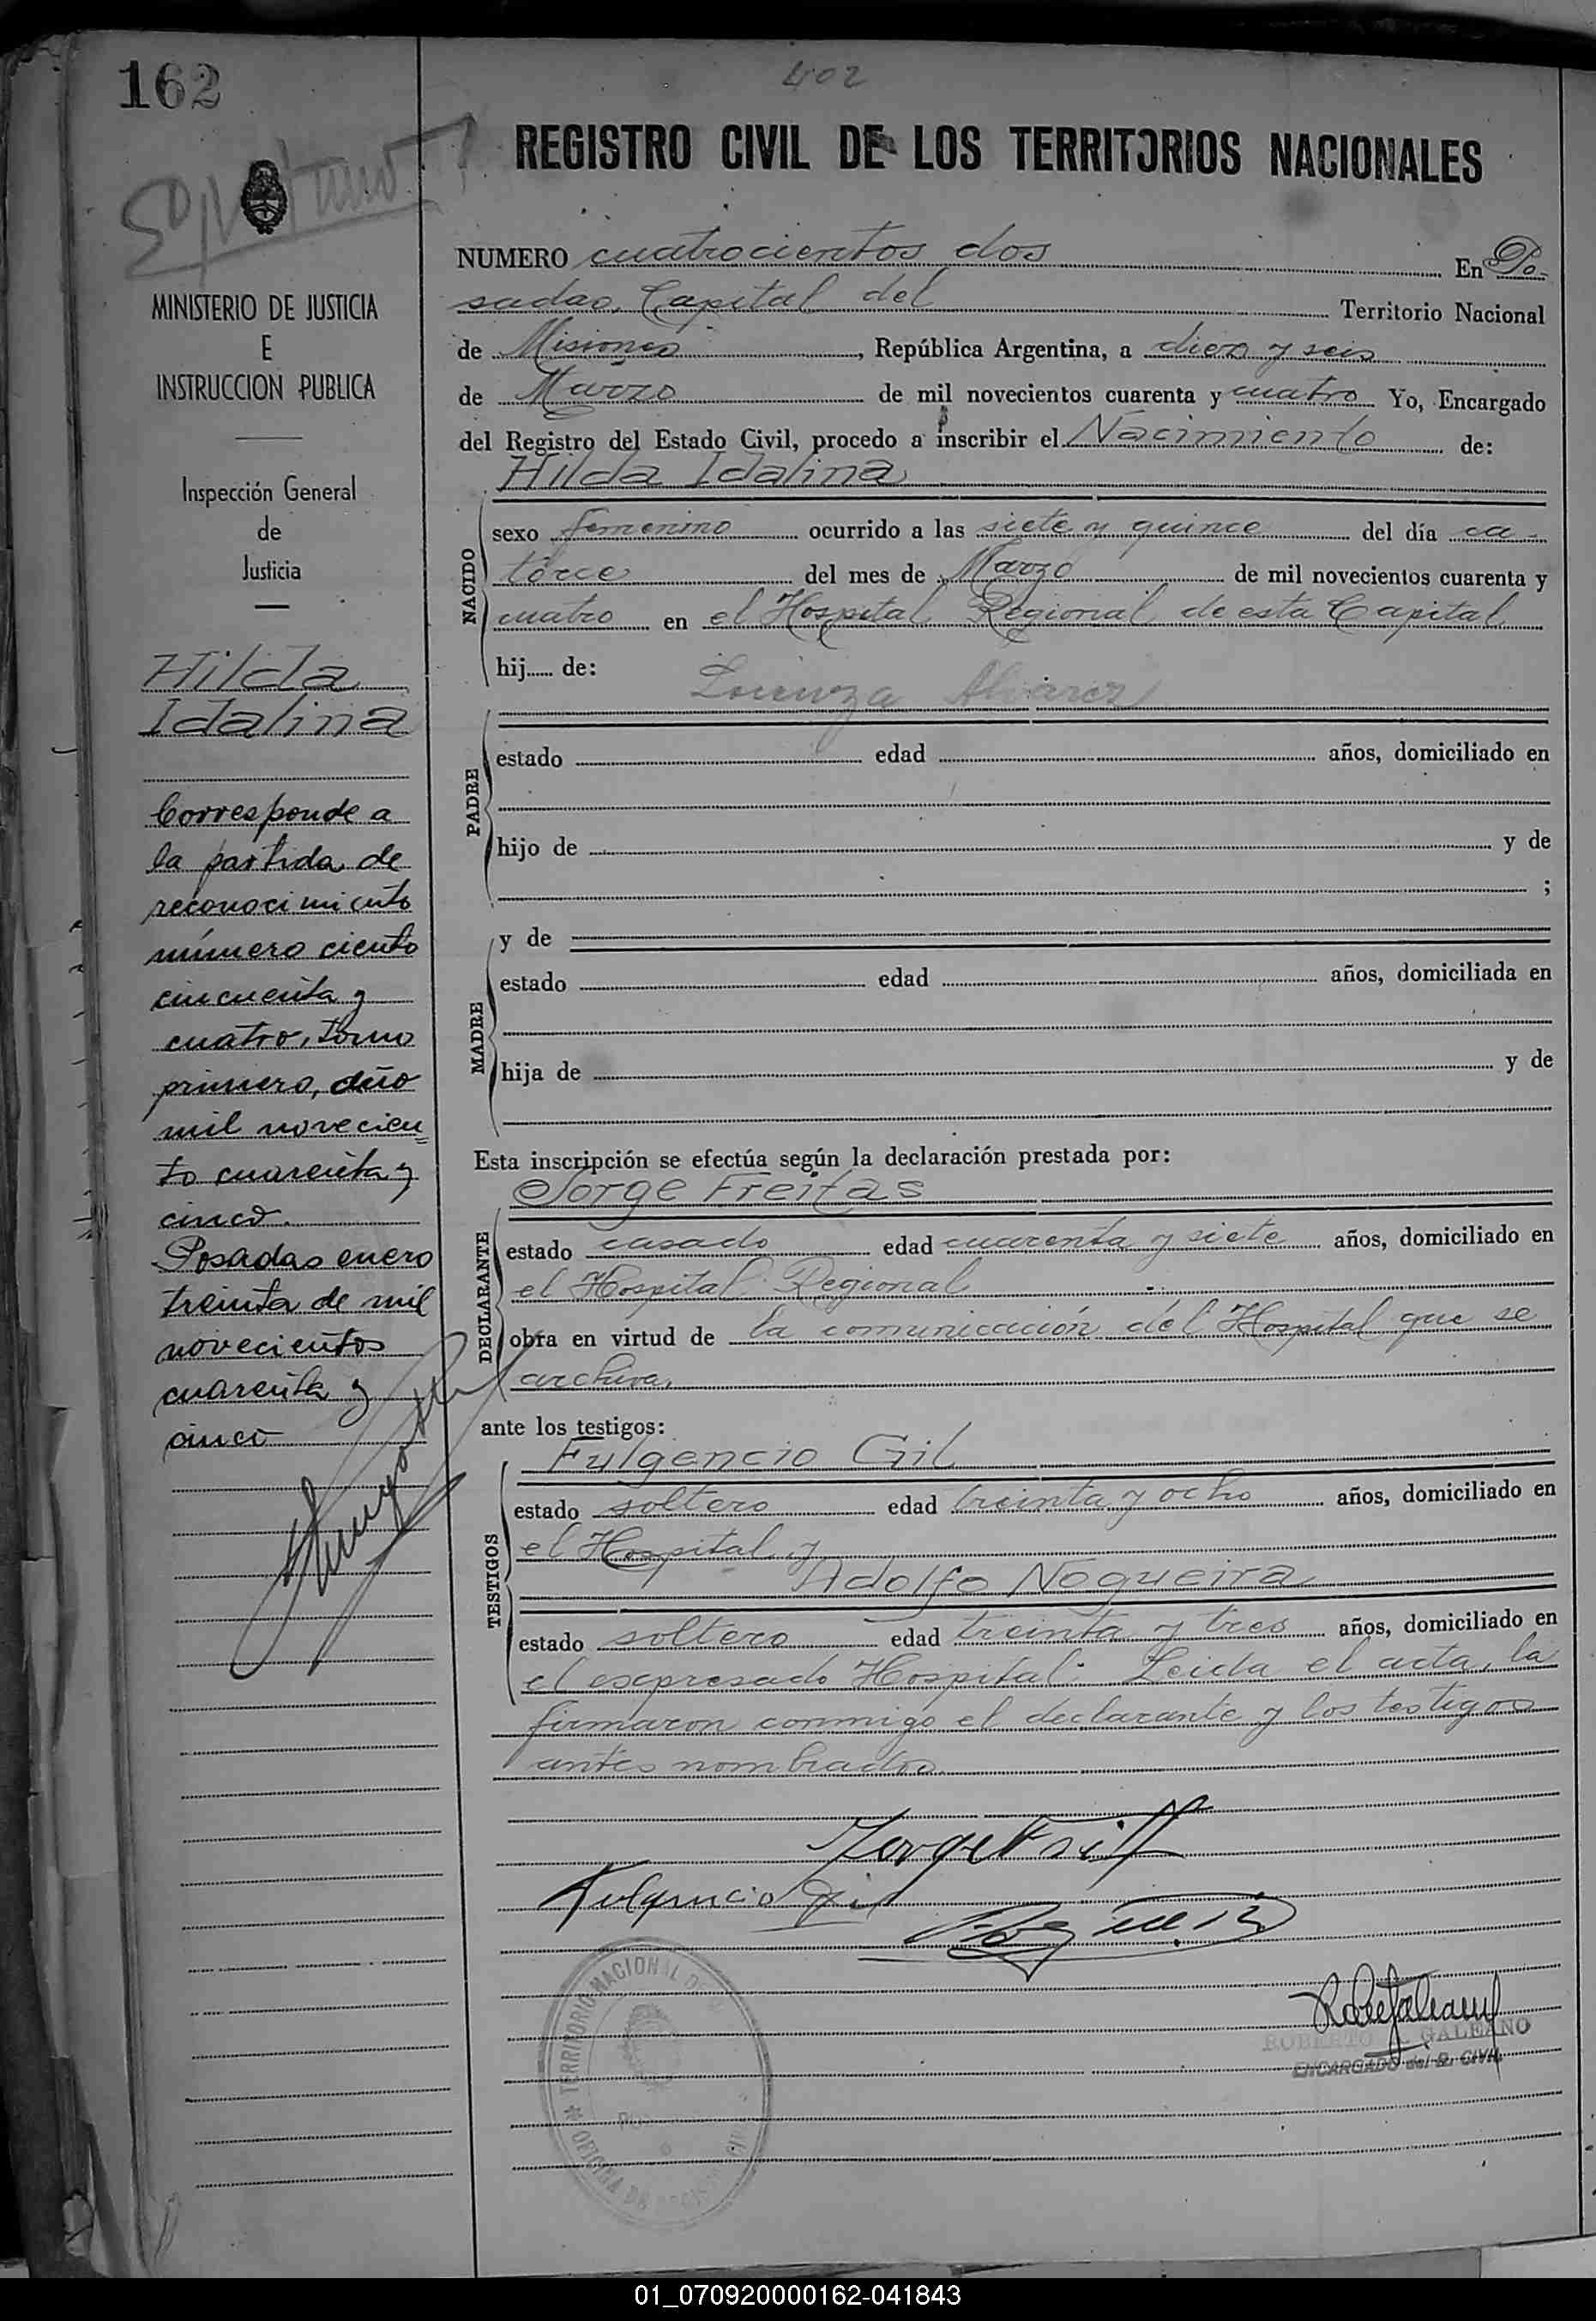 162
402
REGISTRO CIVIL DE LOS TERRITORIOS NACIONALES
MINISTERIO DE JUSTICIA
E
INSTRUCCION PUBLICA
Inspección General
de
Justicia
Hilda
Idalina
Corresponde a
la partida de
reconocimiento
número ciento
cincuenta y
cuatro, tomo
primero, año
mil novecien=
to cuarenta y
cinco.
Posadas enero
treinta de mil
novecientos
cuarenta y
cinco
NUMERO cuatrocientos dos En Po-
sadas, Capital del Territorio Nacional
de Misiones, República Argentina, a diez y seis
de Marzo de mil novecientos cuarenta y cuatro Yo, Encargado
del Registro del Estado Civil, procedo a inscribir el Nacimiento de:
Hilda Idalina
NACIDO
sexo femenino ocurrido a las siete y quince del día ca-
torce del mes de Marzo de mil novecientos cuarenta y
cuatro en el Hospital Regional de esta Capital
hij...... de:
Lorenza Alvarez
PADRE
estado edad años, domiciliado en
hijo de y de
;
y de
MADRE
estado edad años, domiciliada en
hija de y de
Esta inscripción se efectúa según la declaración prestada por:
Jorge Freitas
DECLARANTE
estado casado edad cuarenta y siete años, domiciliado en
el Hospital Regional
obra en virtud de la comunicación del Hospital que se
archiva.
ante los testigos:
Fulgencio Gil
TESTIGOS
estado soltero edad treinta y ocho años, domiciliado en
el Hospital y
Adolfo Nogueira
estado soltero edad treinta y tres años, domiciliado en
el expresado Hospital. Leida el acta, la
firmaron conmigo el declarante y los testigos
antes nombrados.
Fulgencio Gil
ROBERTO GALEANO
ENCARGADO del R. CIVIL
TERRITORIO NACIONAL DE
OFICINA DE
01_070920000162-041843